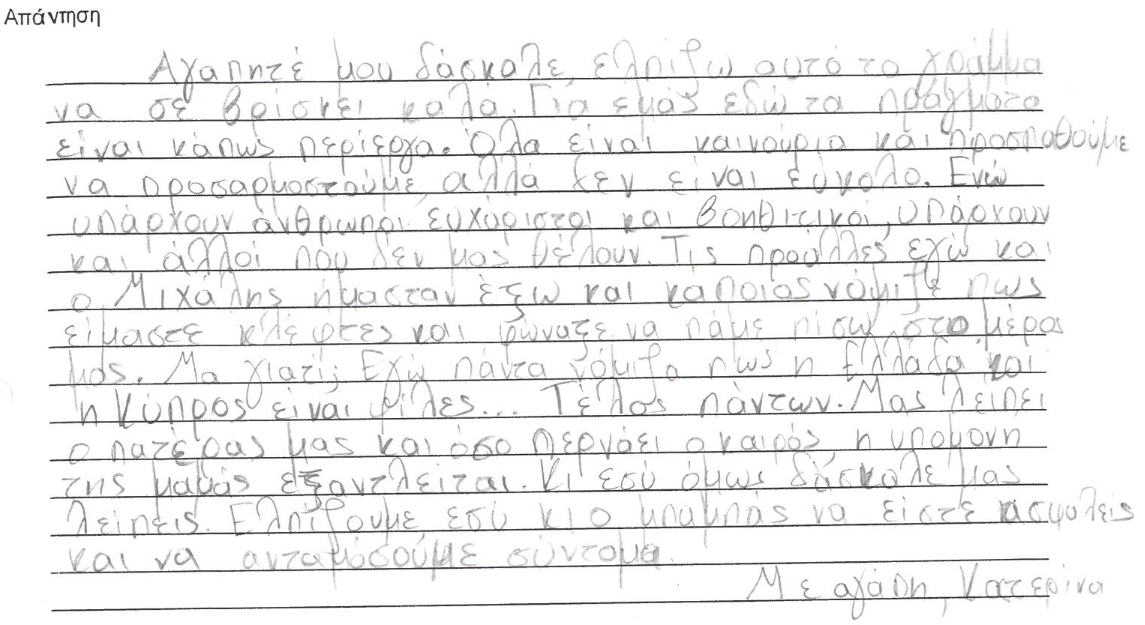 Απάντηση
Αγαπητέ μου δάσκαλε, ελπίζω αυτό το γράμμα
να σε βρίσκει καλά. Για εμάς εδώ τα πράγματα
είναι κάπως περίεργα. Όλα είναι καινούρια και προσπαθούμε
να προσαρμοστούμε, αλλά δεν είναι εύκολο. Ενώ
υπάρχουν άνθρωποι ευχάριστοι και βοηθιτικοί, υπάρχουν
και άλλοι που δεν μας θέλουν. Τις προάλλες εγώ και
ο Μιχάλης ήμασταν έξω και κάποιος νόμιζε πως
είμαστε κλέφτες και φώναξε να πάμε πίσω στο μέρος
μας. Μα γιατί; Εγώ πάντα νόμιζα πως η Ελλάδα και
η Κύπρος είναι φίλες... Τέλος πάντων. Μας λείπει
ο πατέρας μας και όσο περνάει ο καιρός, η υπομονή
της μαμάς εξαντλείται. Κι εσύ όμως δάσκαλε μας
λείπεις. Ελπίζουμε εσύ κι ο μπαμπάς να είστε ασφαλείς
και να ανταμώσουμε σύντομα.
Με αγάπη, Κατερίνα